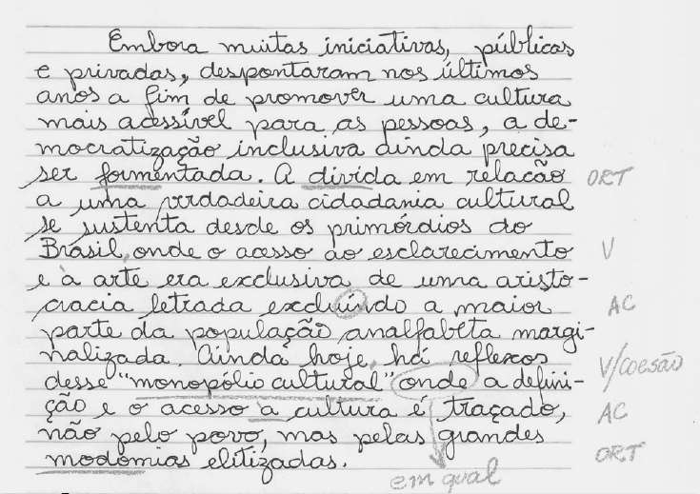 Embora muitas iniciativas, públicas
e privadas, despontaram nos últimos
anos a fim de promover uma cultura
mais acessível para as pessoas, a de-
mocratização inclusiva ainda precisa
ser formentada. A divida em relacão ORT
a uma verdadeira cidadania cultural
se sustenta desde os primórdios do
Brasil, onde o acesso ao esclarecimento V
e à arte era exclusiva de uma aristo-
cracia letrada excluindo a maior AC
parte da população analfabeta margi-
nalizada. Ainda hoje, há reflexos V/coesão
desse "monopólio cultural" onde a defini-
ção e o acesso a cultura é traçado, AC
não pelo povo, mas pelas grandes
modomias elitizadas. ORT
em qual